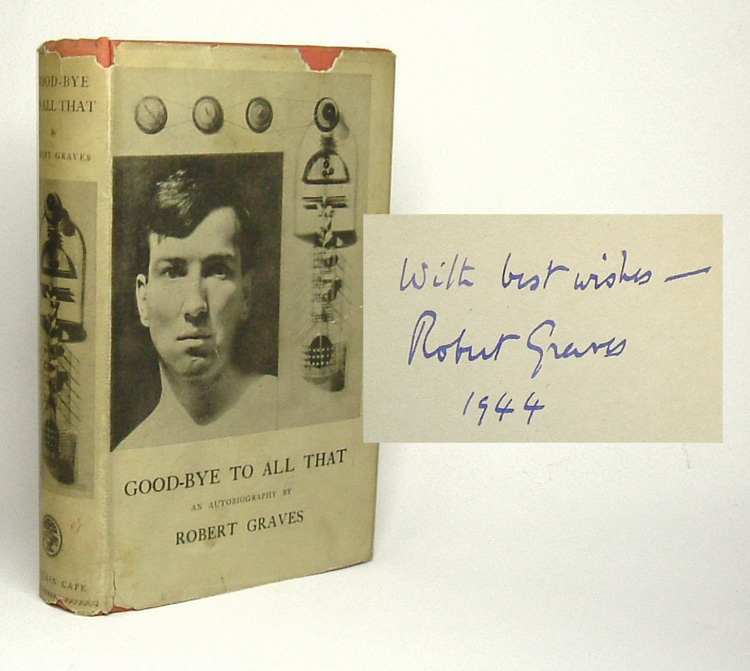 OOD-BYE
ALL THAT
by
RT GRAVES
GOOD-BYE TO ALL THAT
AN AUTOBIOGRAPHY BY
ROBERT GRAVES
CAPE
With best wishes —
Robert Graves
1944